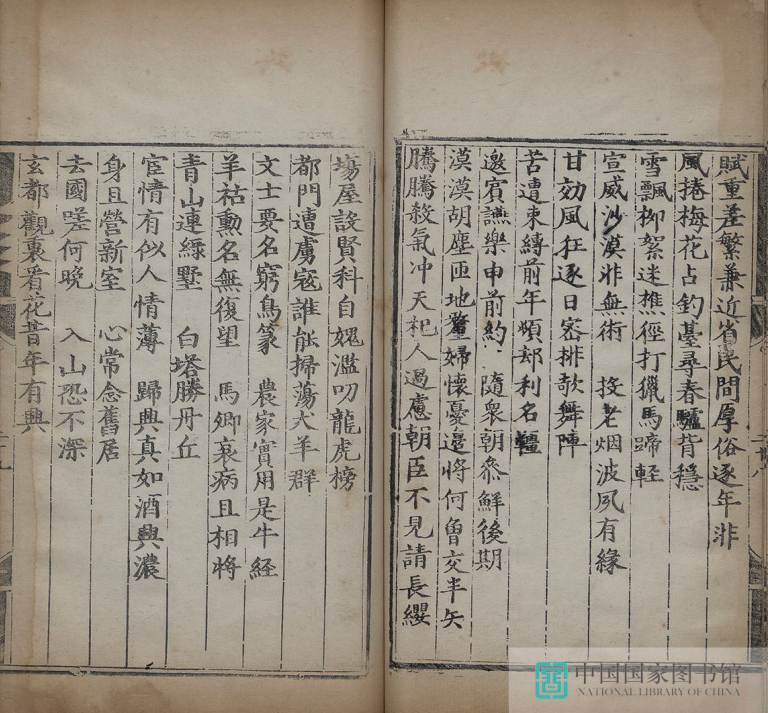 賦重差繁兼近省民間厚俗逐年非
風捲梅花占釣臺尋春驢背穩
雪飄柳絮迷樵徑打獵馬蹄輕
宣威沙漠非無術　投老烟波夙有緣
甘効風狂逐日宻排歌舞陣
苦遭束縛前年煩却利名韁
邀賓讌樂申前約　隨衆朝叅鮮後期
漠漠胡塵匝地嫠婦懷憂邊將何曾交半矢
騰騰殺氣冲天杞人過慮朝臣不見請長纓
塲屋設賢科自媿濫叨龍虎榜
都門遭虜寇誰能掃蕩犬羊群
文士要名窮鳥篆　農家實用是牛經
羊祜勳名無復望　馬卿衰病且相將
青山連緑墅　白塔勝丹丘
宦情有似人情薄　歸興真如酒興濃
身且營新室　心常念舊居
去國嗟何晩　入山恐不深
玄都觀裏看花昔年有興
中国国家图书馆
NATIONAL LIBRARY OF CHINA